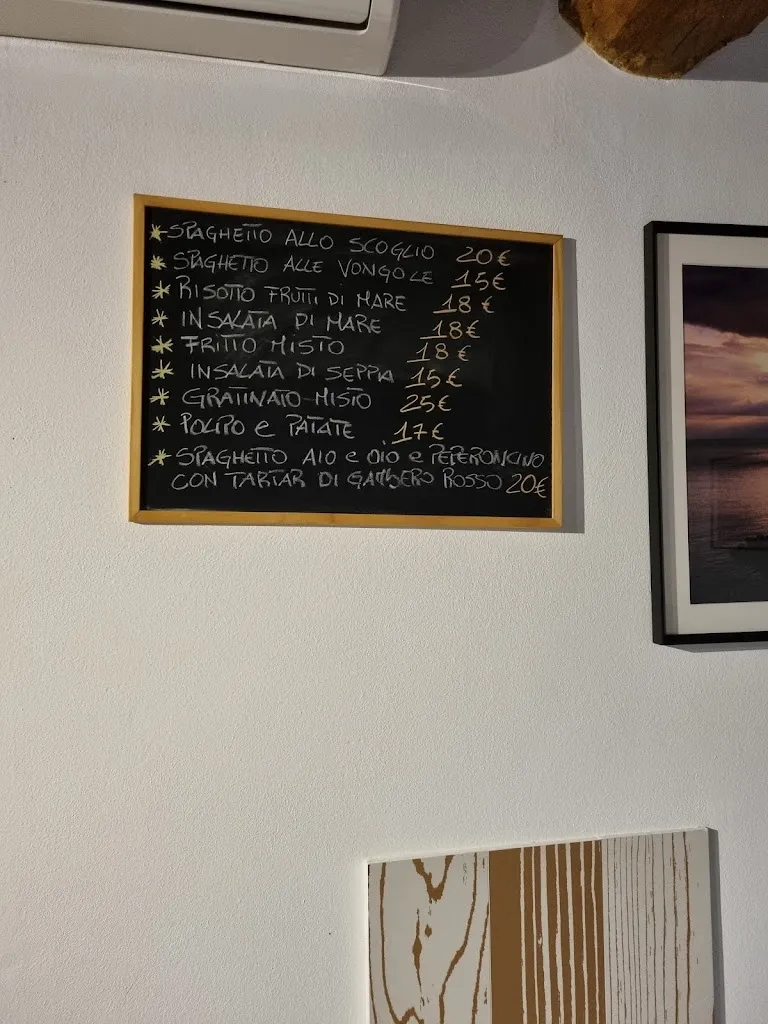 * SPAGHETTO ALLO SCOGLIO 20€
* SPAGHETTO ALLE VONGOLE 15€
* RISOTTO FRUTTI DI MARE 18€
* INSALATA DI MARE 18€
* FRITTO MISTO 18€
* INSALATA DI SEPPIA 15€
* GRATINATO MISTO 25€
* POLIPO e PATATE 17€
* SPAGHETTO AIO e OIO e PEPERONCINO
CON TARTAR DI GAMBERO ROSSO 20€